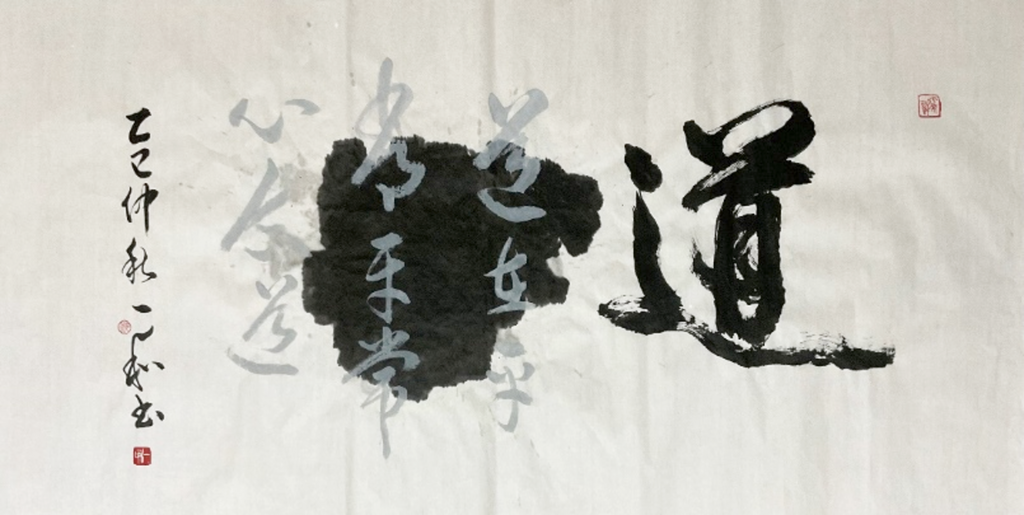 道
道在乎
平常
心 道
乙巳仲秋一 书